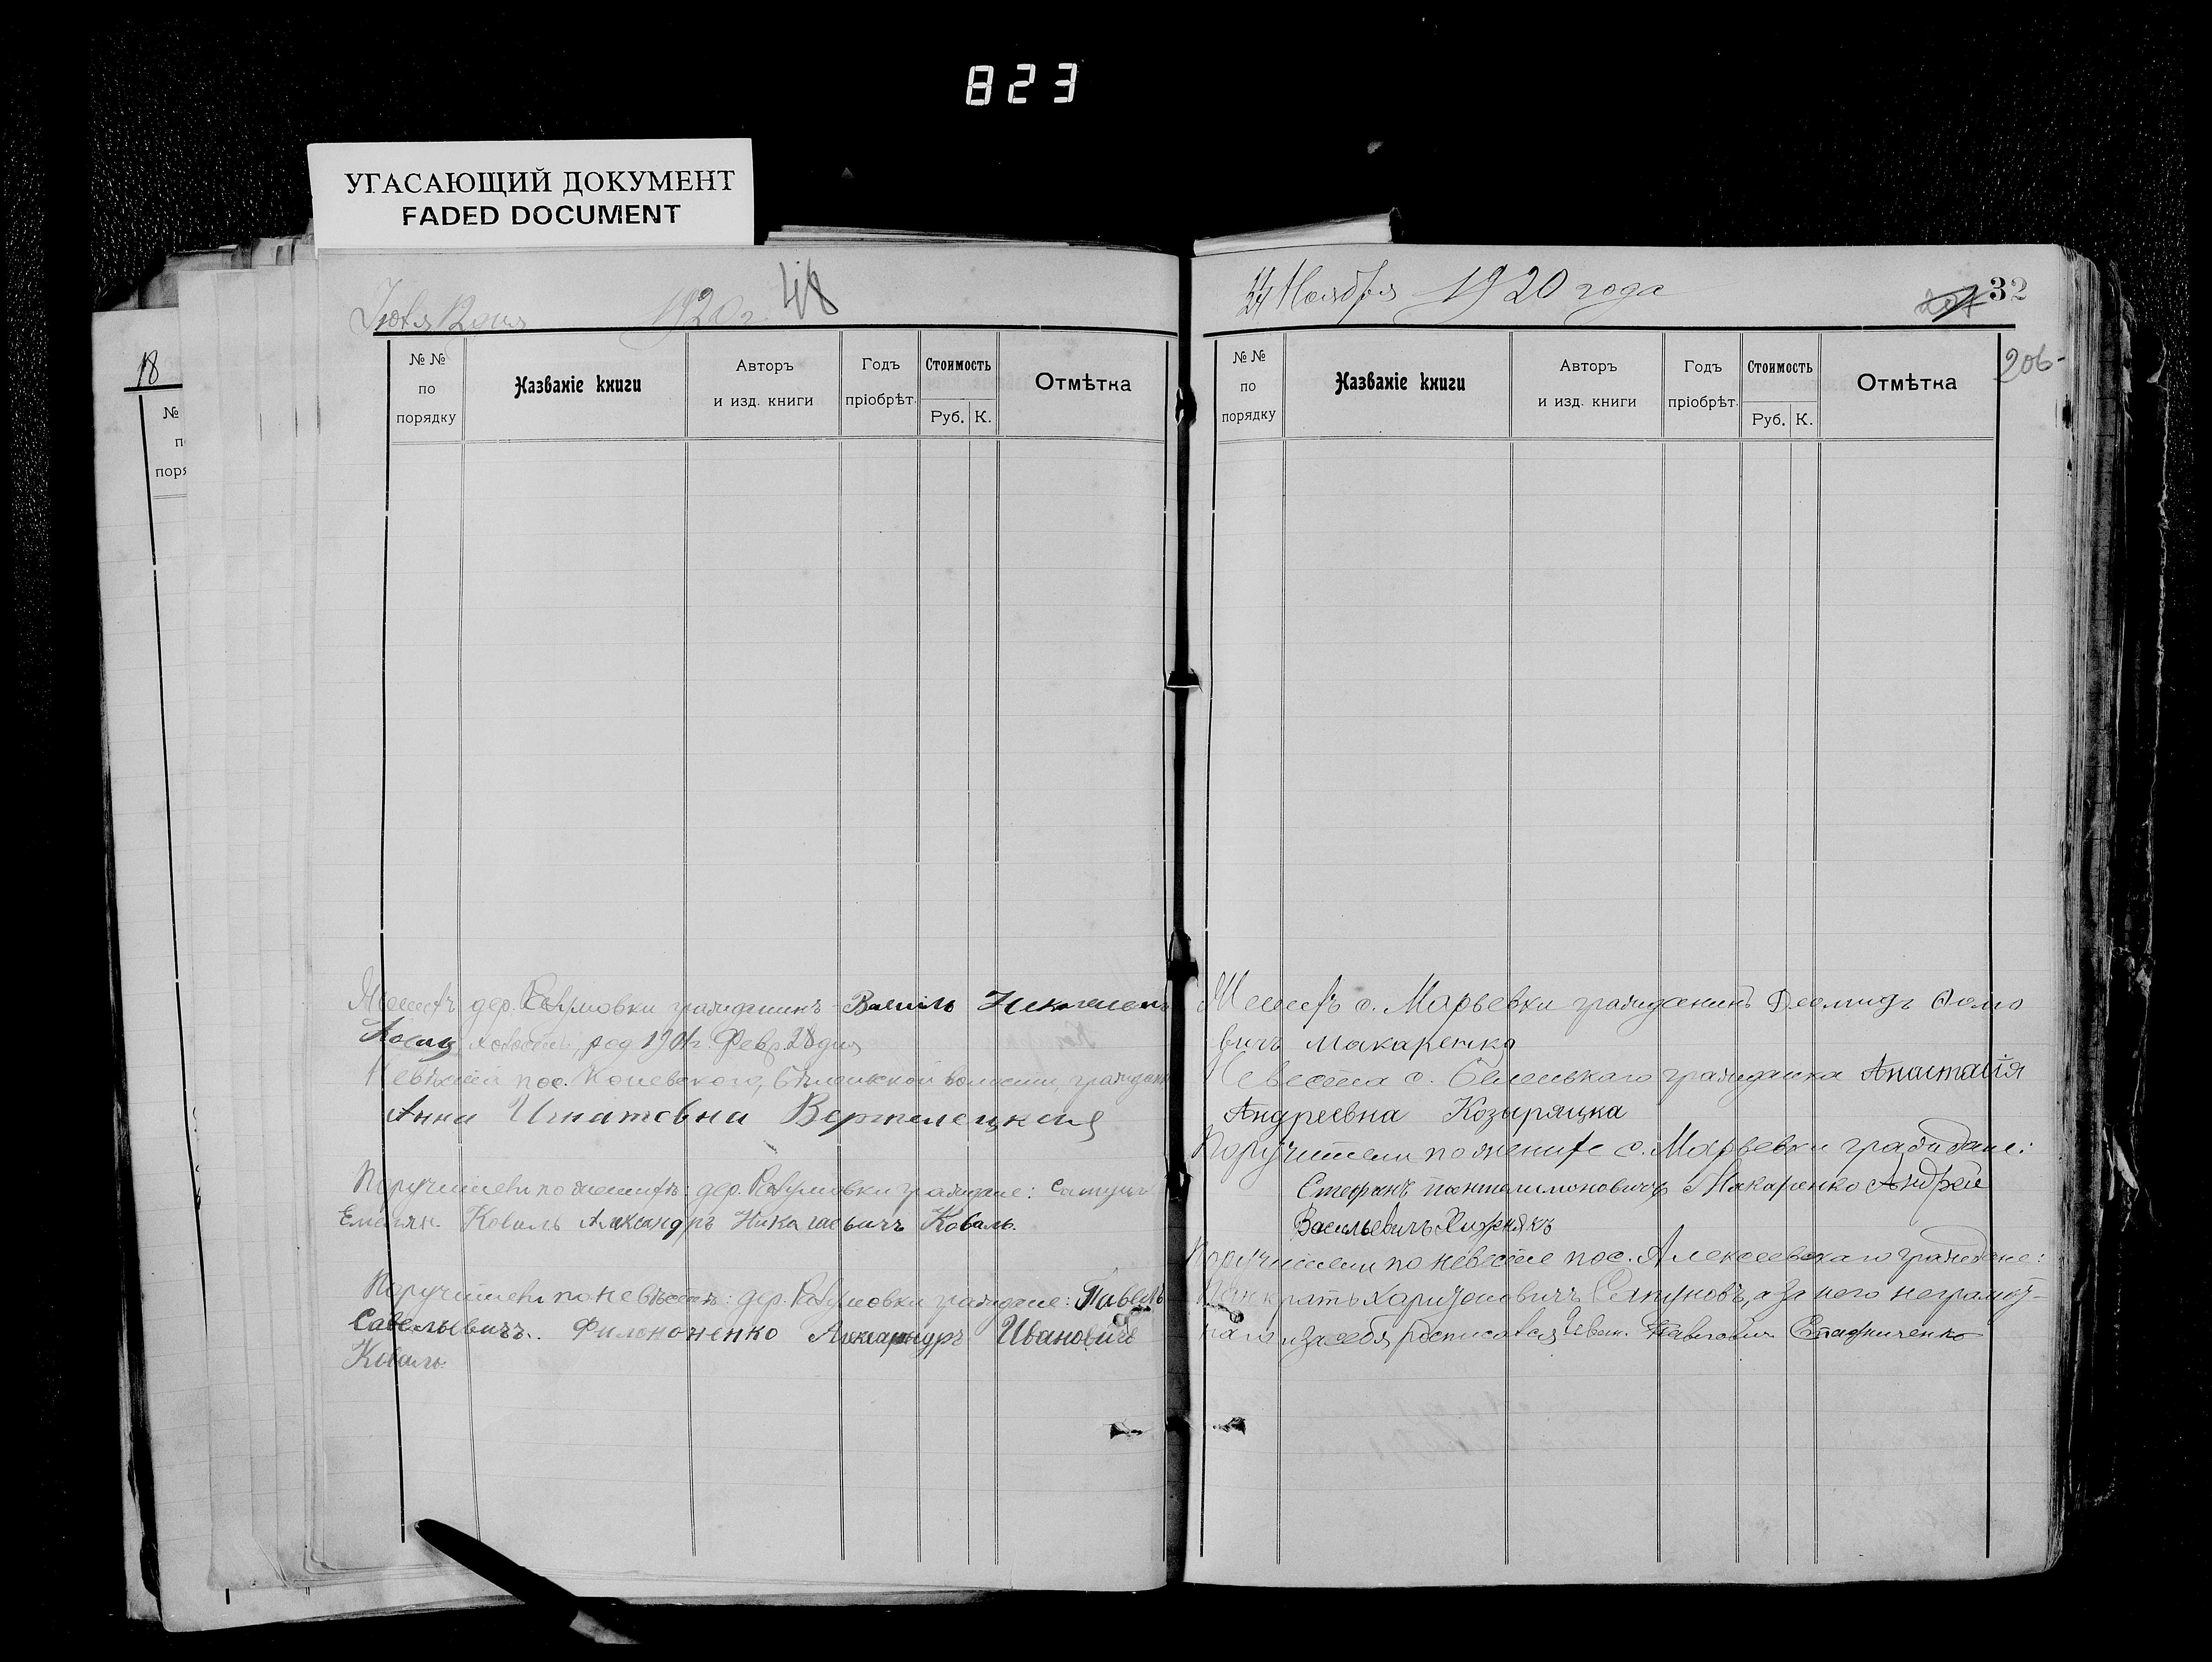 823
УГАСАЮЩИЙ ДОКУМЕНТ
FADED DOCUMENT
18
№
по
поря
Іюля 12 дня 1920 г. 48
№ №
по
порядку
Названіе книги
Авторъ
и изд. книги
Годъ
пріобрѣт.
Стоимость
Руб. К.
Отмѣтка
Женихъ дер. Разумовки гражданинъ
род 1901 г. Февр. 28 дня
Невѣста пос. волости, граждан
Анна Игнатовна
Поручители по женихѣ: дер. Разумовки граждане:
Емельян. Коваль Александръ Николаевичъ Коваль.
Поручители по невѣстѣ: дер. Разумовки граждане: Павелъ
Савельевичъ. Филоненко Александръ Ивановичъ
Коваль
24 Ноября 1920 года
32
206-
№ №
по
порядку
Названіе книги
Авторъ
и изд. книги
Годъ
пріобрѣт.
Стоимость
Руб. К.
Отмѣтка
Женихъ с. Марьевки гражданинъ Деомидъ Фомо
вичъ Макаренко
Невеста с. Беленькаго гражданка Анастасія
Андреевна Козыряцка
Поручители по женихе с. Марьевки граждане:
Стефанъ Понтелимоновичъ Макаренко Андрей
Васильевичъ Хижнякъ
Поручители по невесте пос. Алексеевскаго граждане:
Панкратъ Харитоновичъ а за него неграмот-
наго и за себя росписался Иван. Павлович